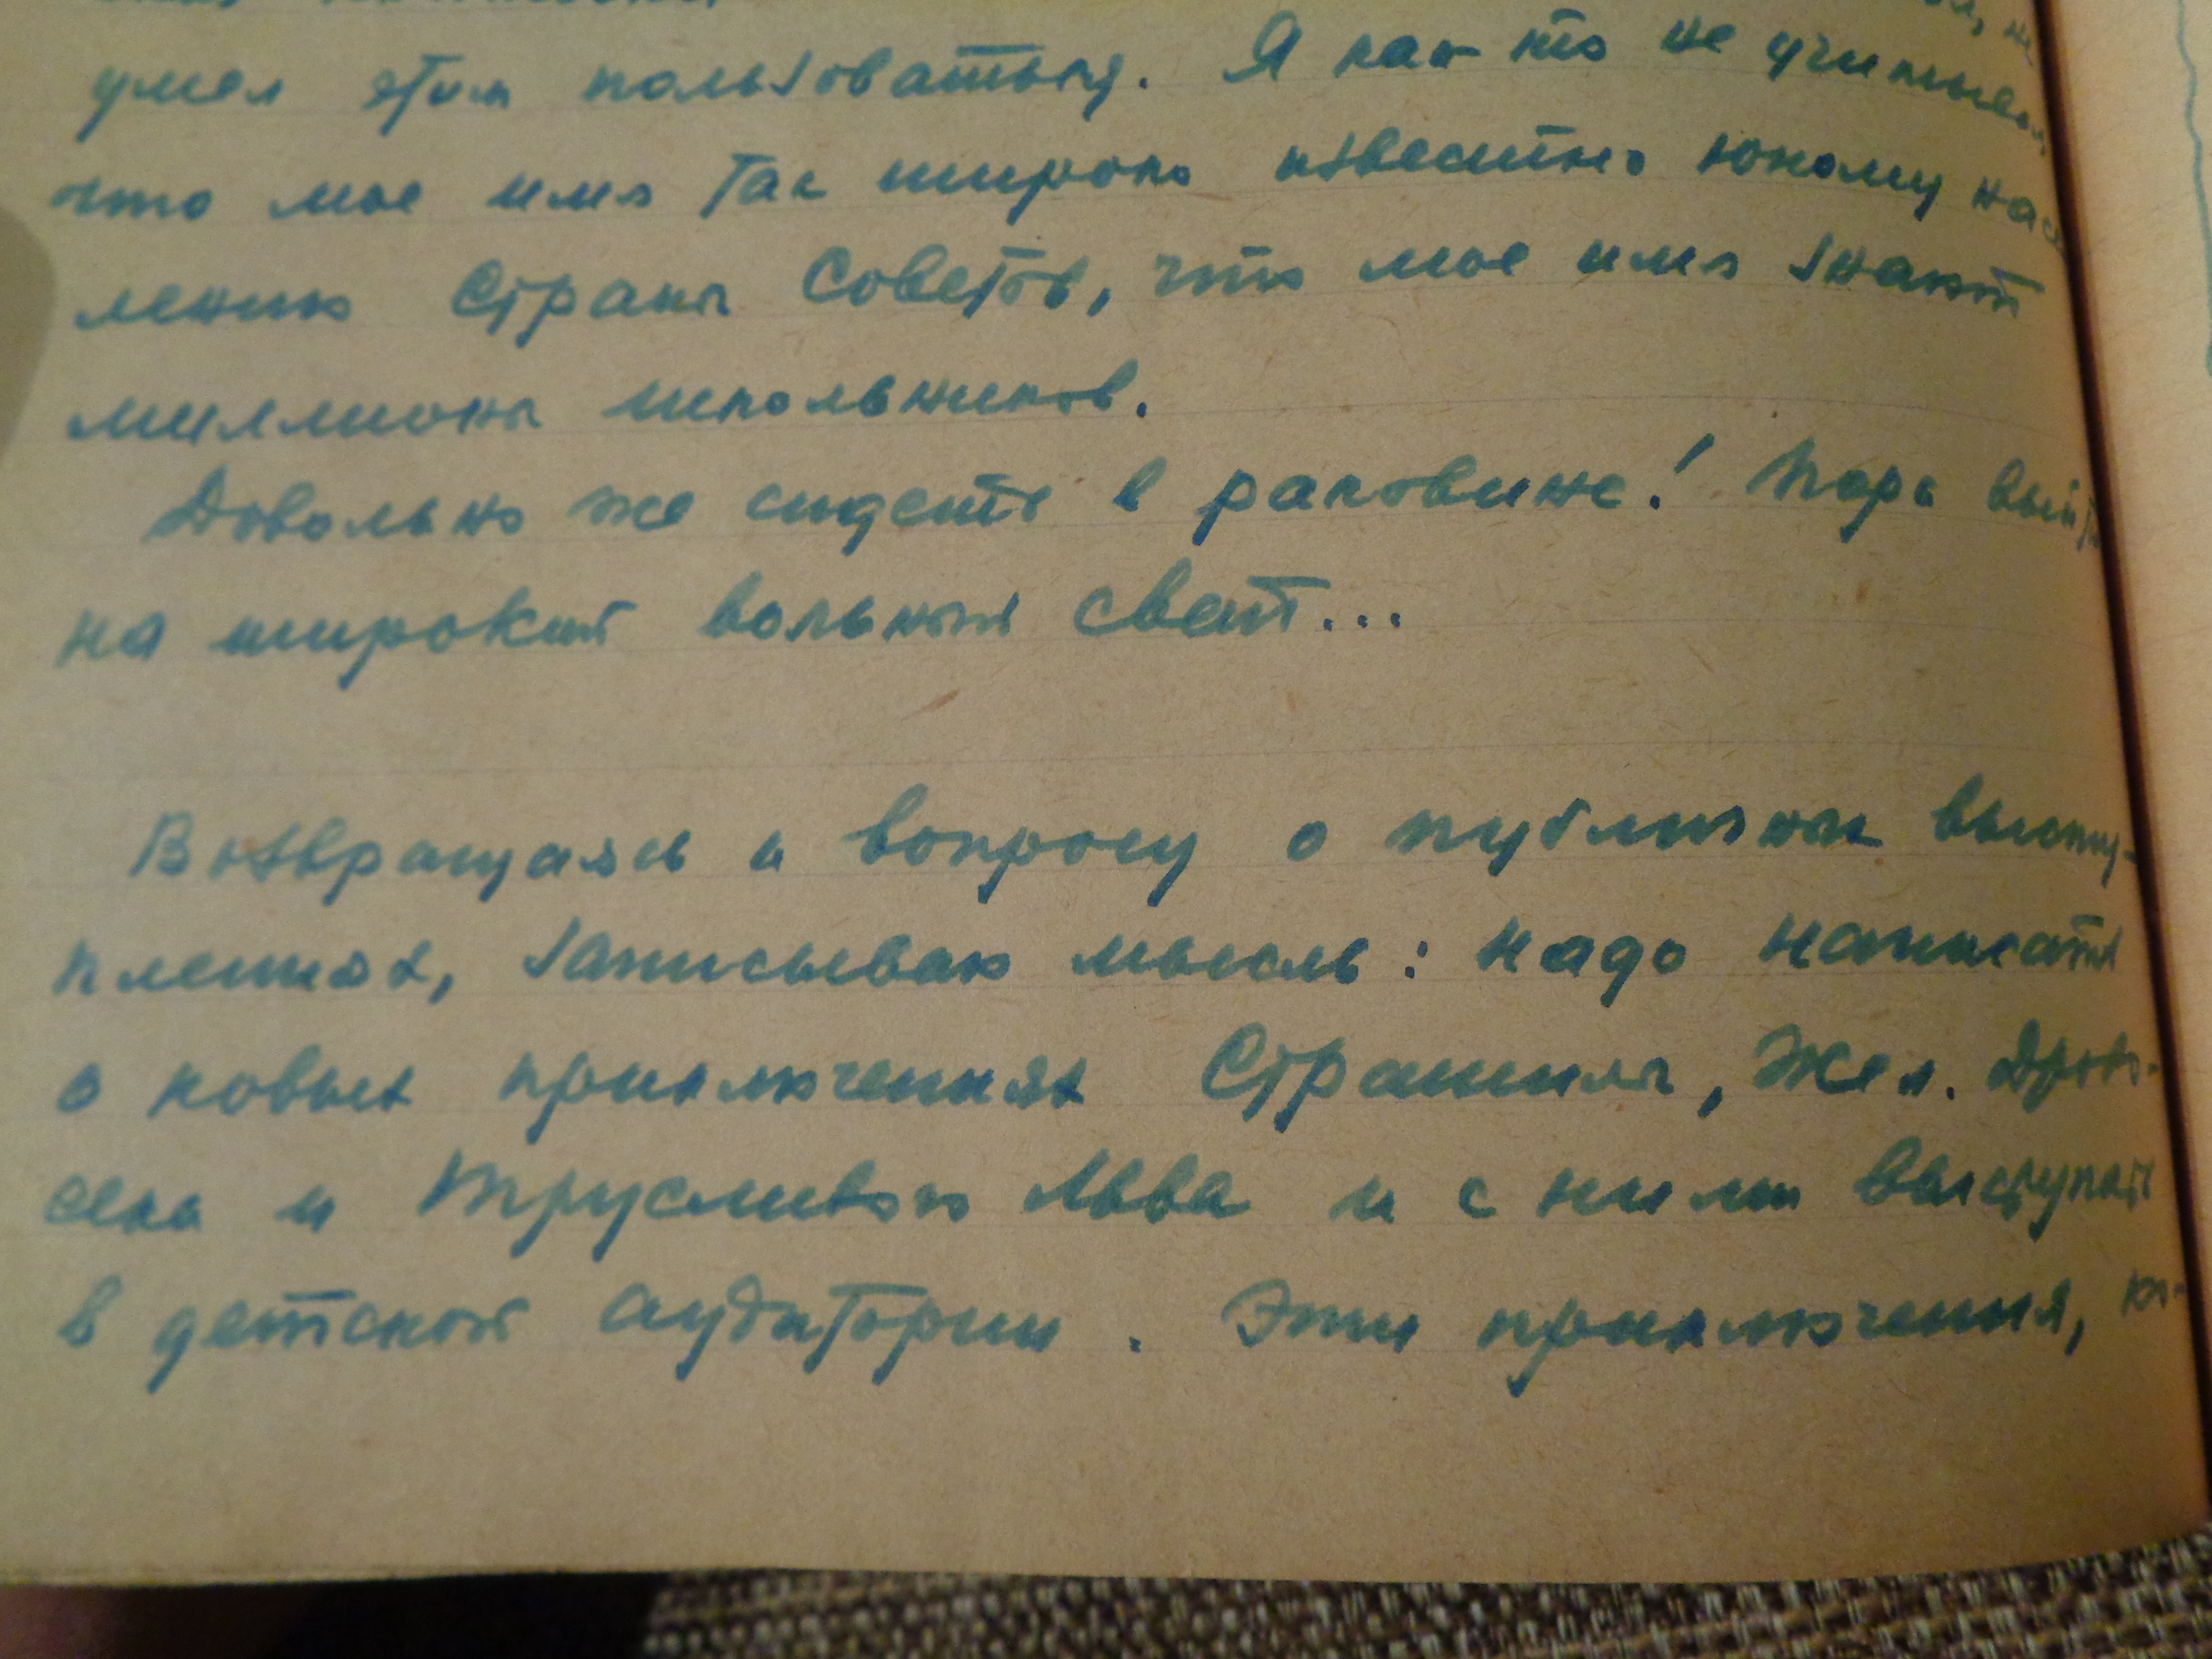 умел этим пользоваться. Я как то не учитывал,
что мое имя так широко известно юному насе
лению Страны Советов, что мое имя знают
миллионы школьников.
Довольно же сидеть в раковине! Пора выйти
на широкий вольный свет...
Возвращаясь к вопросу о публичных высту-
плениях, записываю мысль: надо написать
о новых приключениях Страшилы, Жел. Дрово-
сека и Трусливого Льва и с ними выступать
в детской аудитории. Эти приключения,